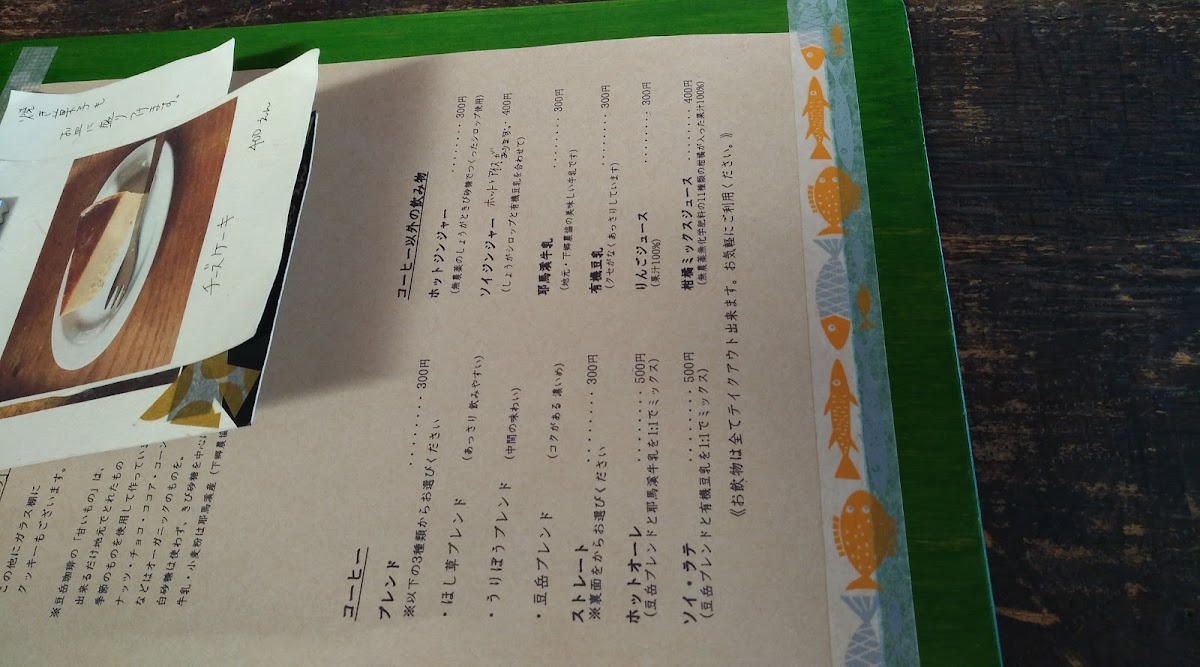 焼き菓子も
お皿に盛り付けます。
400えん
チーズケーキ
この他にガラス棚に
クッキーもございます。
※豆岳珈琲の「甘いもの」は、
出来るだけ地元でとれたもの
季節のものを使用して作ってい
ナッツ・チョコ・ココア・コーン
などはオーガニックのものを。
白砂糖は使わず、きび砂糖を中心に
牛乳・小麦粉は耶馬溪産(下郷農協
コーヒー
ブレンド ········ 300円
※以下の3種類からお選びください
・ほし草ブレンド (あっさり 飲みやすい)
・うりぼうブレンド (中間の味わい)
・豆岳ブレンド (コクがある 濃いめ)
ストレート ········ 300円
※裏面をからお選びください
ホットオーレ ········ 500円
(豆岳ブレンドと耶馬溪牛乳を1:1でミックス)
ソイ・ラテ ········ 500円
(豆岳ブレンドと有機豆乳を1:1でミックス)
コーヒー以外の飲み物
ホットジンジャー ········ 300円
(無農薬のしょうがときび砂糖でつくったシロップ使用)
ソイジンジャー ホットとアイスがあります。 400円
(しょうがシロップと有機豆乳を合わせて)
耶馬溪牛乳 ········ 300円
(地元・下郷農協の美味しい牛乳です)
有機豆乳 ········ 300円
(クセがなくあっさりしています)
りんごジュース ········ 300円
(果汁100%)
柑橘ミックスジュース ········ 400円
(無農薬無化学肥料の11種類の柑橘が入った果汁100%)
《お飲物は全てテイクアウト出来ます。お気軽にご利用ください。》